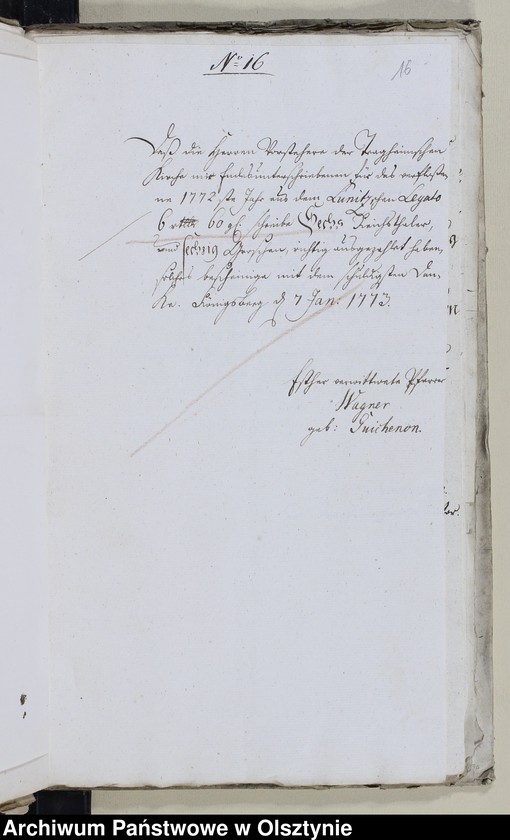 No 16
16
Daß die Herren Vorstehere der Tragheimschen
Kirche mir Endesunterschriebenen für das verfloße-
ne 1772ste Jahr aus dem Lunitzschen Legato
6 rthlr 60 gl schreibe Sechs Reichsthaler,
und sechzig Groschen, richtig ausgezahlet haben,
solches bescheinige mit dem schuldigsten Dan-
ke. Königsberg d 7 Jan: 1773.
Esther verwittwete Pfarrer
Wagner
geb: Guichenon.
Archiwum Państwowe w Olsztynie